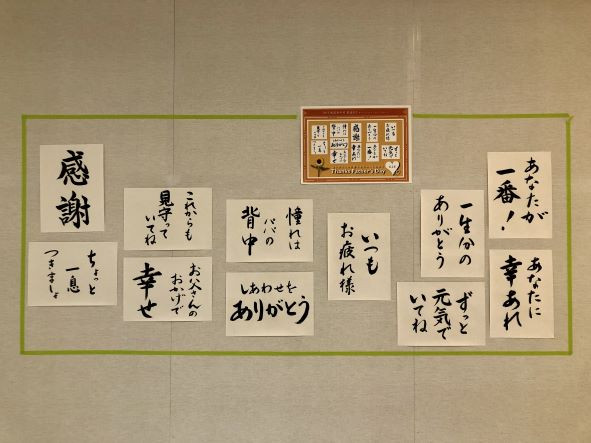 Thanks Father's Day
あなたが
一番！
あなたに
幸あれ
一生分の
ありがとう
ずっと
元気で
いてね
いつも
お疲れ様
憧れは
パパの
背中
しあわせを
ありがとう
これからも
見守って
いてね
お父さんの
おかげで
幸せ
感謝
ちょっと
一息
つきましょ